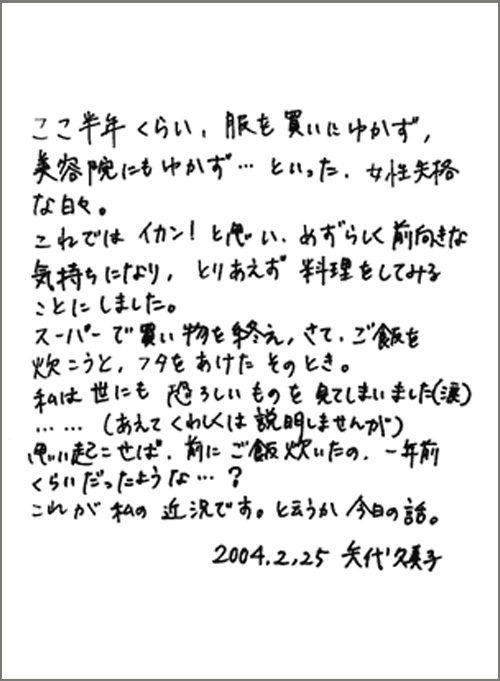 ここ半年くらい、服を買いにゆかず、
美容院にもゆかず…といった、女性失格
な日々。
これではイカン!と思い、めずらしく前向きな
気持ちになり、とりあえず料理をしてみる
ことにしました。
スーパーで買い物を終え、さて、ご飯を
炊こうと、フタをあけたそのとき。
私は世にも恐ろしいものを見てしまいました(涙)
……(あえてくわしくは説明しませんが)
思い起こせば、前にご飯炊いたの、一年前
くらいだったような…?
これが私の近況です。と云うか今日の話。
2004.2.25 矢代久美子